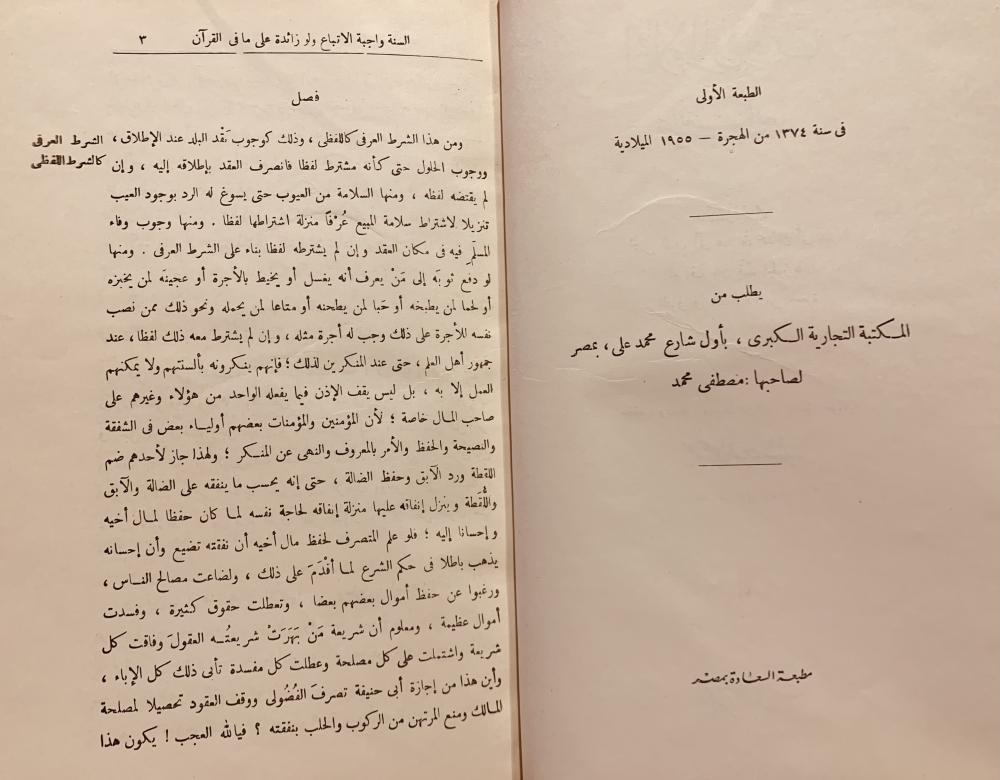 الطبعة الأولى
فى سنة ١٣٧٤ من الهجرة — ١٩٥٥ الميلادية
يطلب من
المكتبة التجارية الكبرى ، بأول شارع محمد على ، بمصر
لصاحبها : مصطفى محمد
مطبعة السعادة بمصر
السنة واجبة الاتباع ولو زائدة على ما فى القرآن ٣
فصل
ومن هذا الشرط العرفى كاللفظى ، وذلك كوجوب نَقْد البلد عند الإطلاق ،
الشرط العرفى
ووجوب الحلول حتى كأنه مشترط لفظا فانصرف العقد بإطلاقه إليه ، وإن
كالشرط اللفظى
لم يقتضه لفظه ، ومنها السلامة من العيوب حتى يسوغ له الرد بوجود العيب
تنزيلا لاشتراط سلامة المبيع عُرْفاً منزلة اشتراطها لفظا . ومنها وجوب وفاء
المسلَّم فيه فى مكان العقد وإن لم يشترطه لفظا بناء على الشرط العرفى . ومنها
لو دفع ثوبَه إلى مَنْ يعرف أنه يغسل أو يخيط بالأجرة أو عجينَه لمن يخبزه
أو لحما لمن يطبخه أو حَبا لمن يطحنه أو متاعا لمن يحمله ونحو ذلك ممن نصب
نفسه للأجرة على ذلك وجب له أجرة مثله ، وإن لم يشترط معه ذلك لفظا ، عند
جمهور أهل العلم ، حتى عند المنكرين لذلك ؛ فإنهم ينكرونه بألسنتهم ولا يمكنهم
العمل إلا به ، بل ليس يقف الإذن فيما يفعله الواحد من هؤلاء وغيرهم على
صاحب المال خاصة ؛ لأن المؤمنين والمؤمنات بعضهم أولياء بعض فى الشفقة
والنصيحة والحفظ والأمر بالمعروف والنهى عن المنكر ؛ ولهذا جاز لأحدهم ضم
اللقطة ورد الآبق وحفظ الضالة ، حتى إنه يحسب ما ينفقه على الضالة والآبق
واللُّقَطة وينزل إنفاقه عليها منزلة إنفاقه لحاجة نفسه لما كان حفظا لمال أخيه
وإحسانا إليه ؛ فلو علم المتصرف لحفظ مال أخيه أن نفقته تضيع وأن إحسانه
يذهب باطلا فى حكم الشرع لما أقْدَمَ على ذلك ، ولضاعت مصالح الناس ،
ورغبوا عن حفظ أموال بعضهم بعضا ، وتعطلت حقوق كثيرة ، وفسدت
أموال عظيمة ، ومعلوم أن شريعة مَنْ بَهَرَتْ شريعتُه العقولَ وفاقت كل
شريعة واشتملت على كل مصلحة وعطلت كل مفسدة تأبى ذلك كل الإباء ،
وأين هذا من إجازة أبى حنيفة تصرفَ الفُضُولى ووقف العقود تحصيلا لمصلحة
المالك ومنع المرتهن من الركوب والحلب بنفقته ؟ فيالله العجب ! يكون هذا